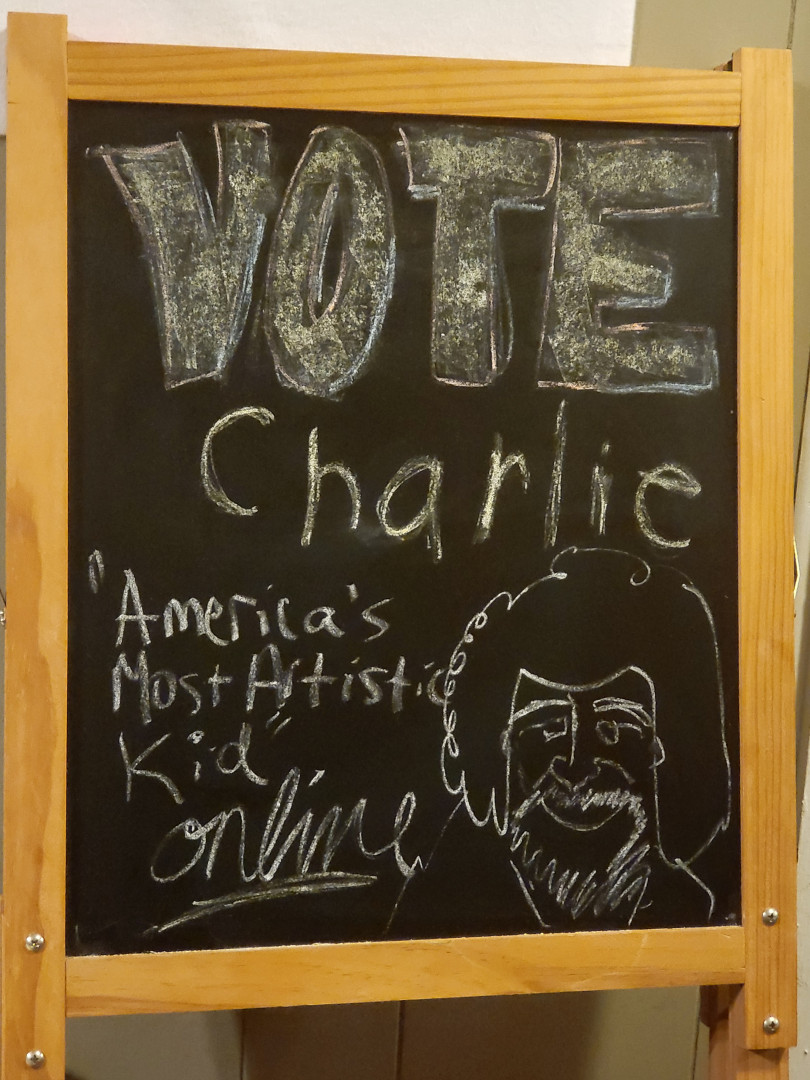 VOTE
Charlie
"America's
Most Artistic
Kid"
online